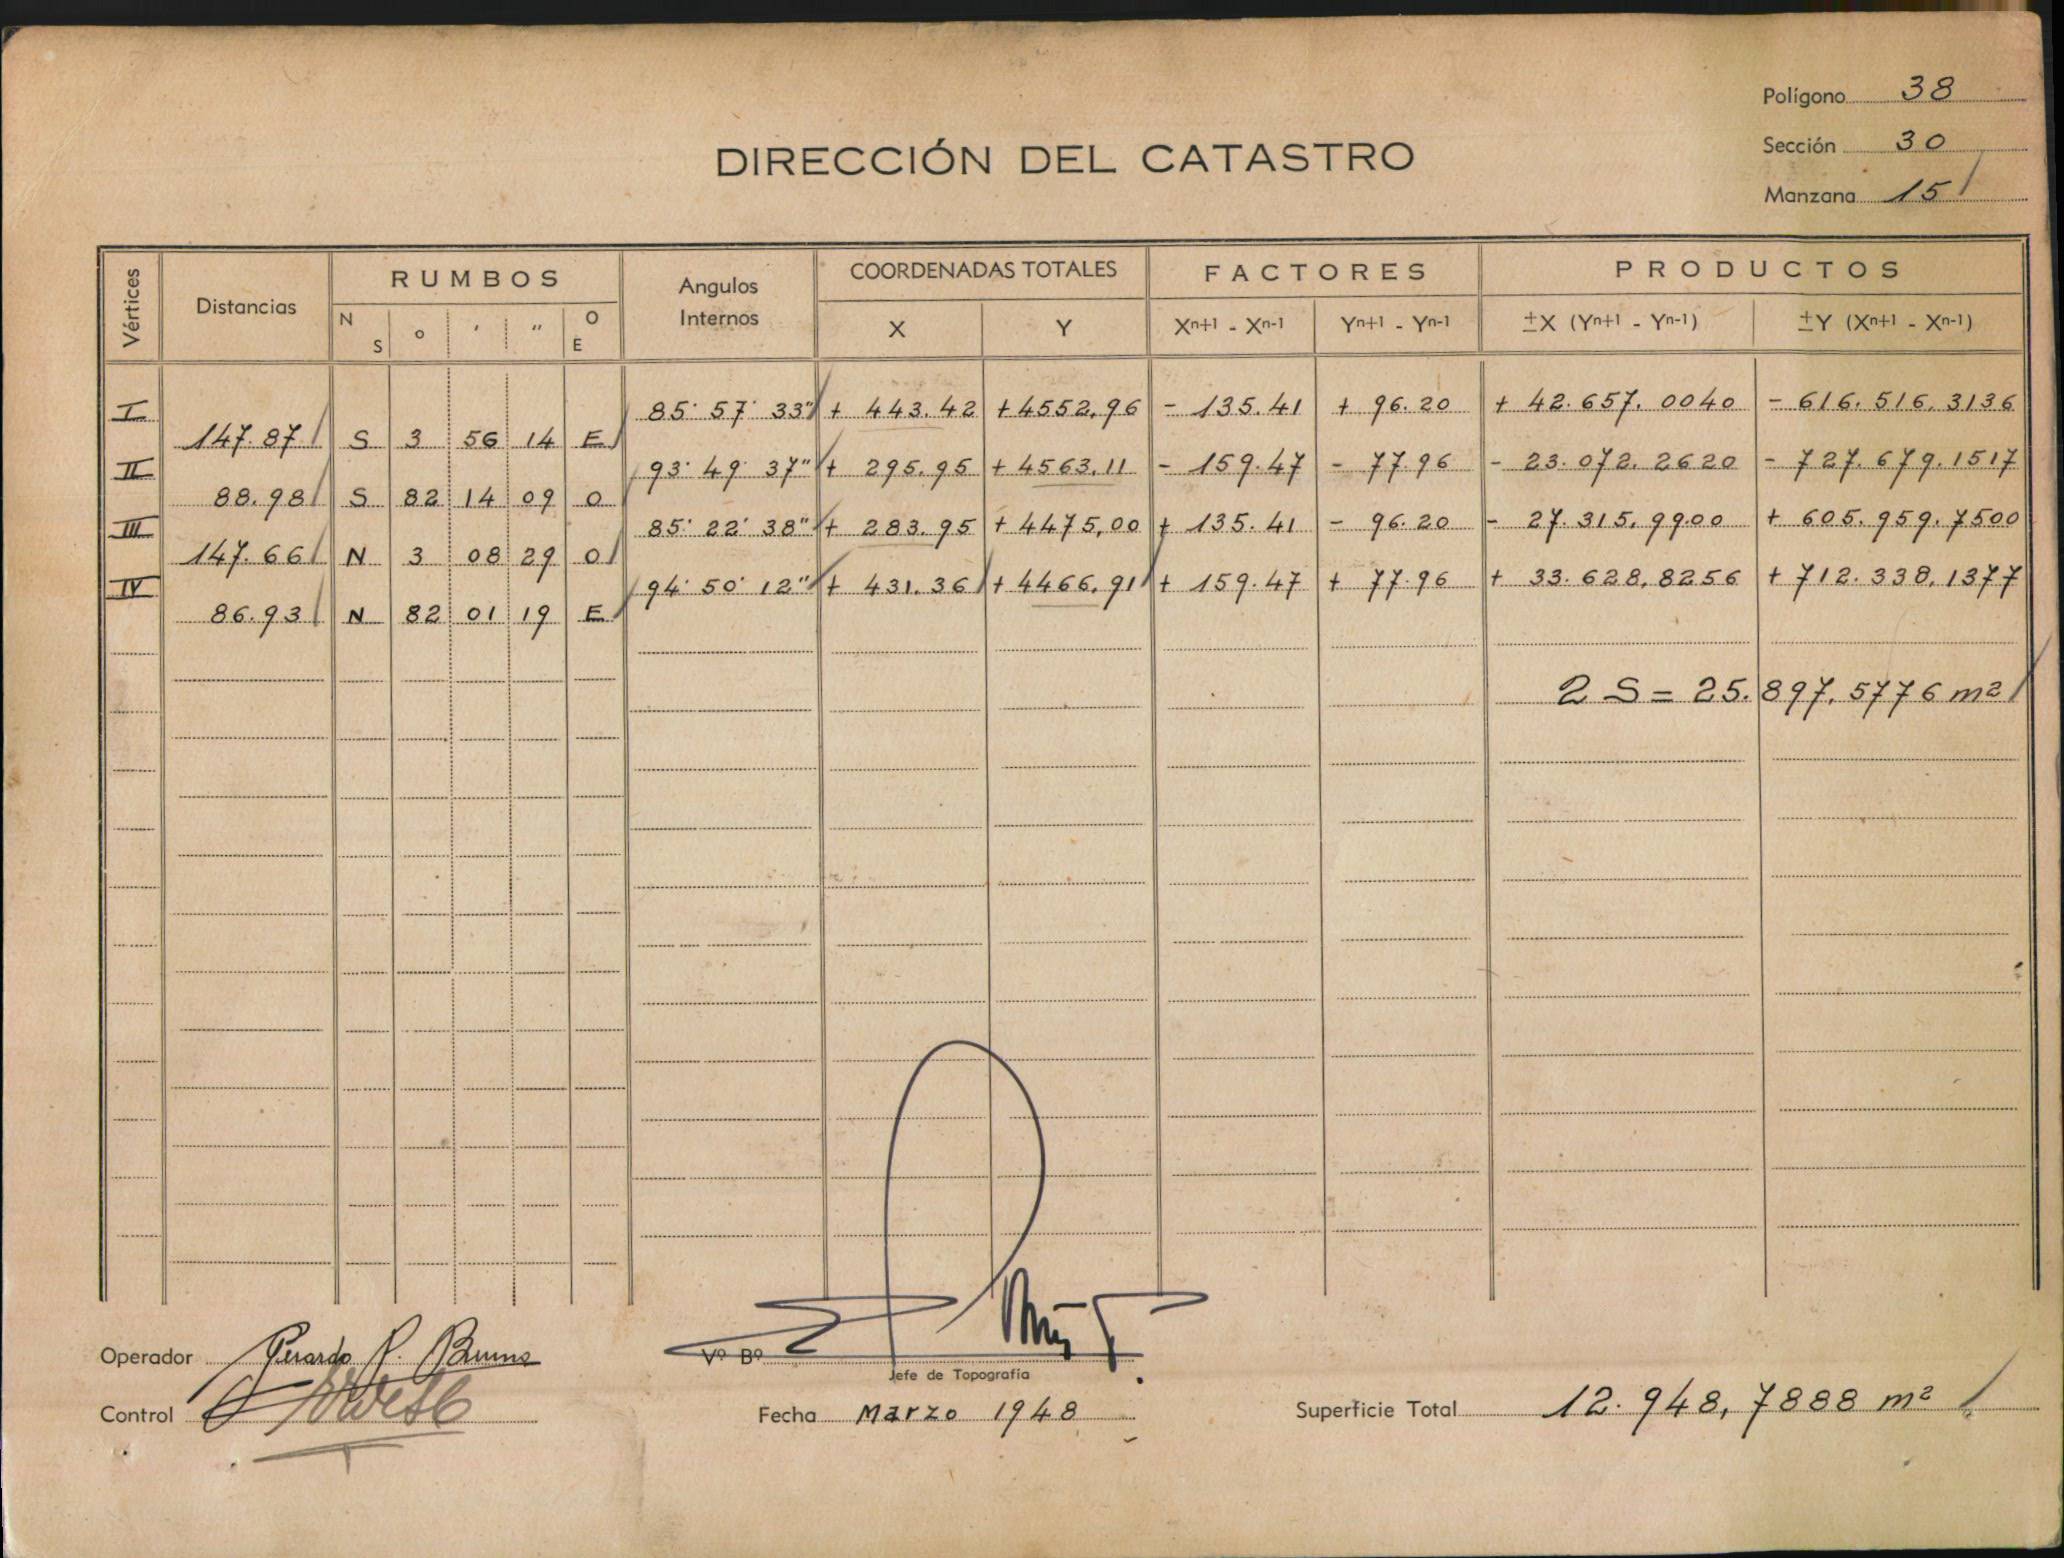 Polígono 38
Sección 30
Manzana 15
DIRECCIÓN DEL CATASTRO
Vértices Distancias RUMBOS Angulos Internos COORDENADAS TOTALES FACTORES PRODUCTOS
N S o ' " O E X Y Xn+1 - Xn-1 Yn+1 - Yn-1 ±X (Yn+1 - Yn-1) ±Y (Xn+1 - Xn-1)
I 85° 57' 33" + 443.42 +4552,96 - 135.41 + 96.20 + 42.657.0040 - 616.516,3136
147.87 S 3 56 14 E
II 93° 49' 37" + 295.95 + 4563,11 - 159.47 - 77.96 - 23.072.2620 - 727.679.1517
88.98 S 82 14 09 O
III 85° 22' 38" + 283.95 + 4475,00 + 135.41 - 96.20 - 27.315,9900 + 605.959.7500
147.66 N 3 08 29 O
IV 94° 50' 12" + 431.36 + 4466,91 + 159.47 + 77.96 + 33.628,8256 + 712.338,1377
86.93 N 82 01 19 E
2 S = 25.897,5776 m²
Operador Gerardo R. Bruno
Vº Bº
Jefe de Topografía
Control
Fecha Marzo 1948
Superficie Total 12.948,7888 m²